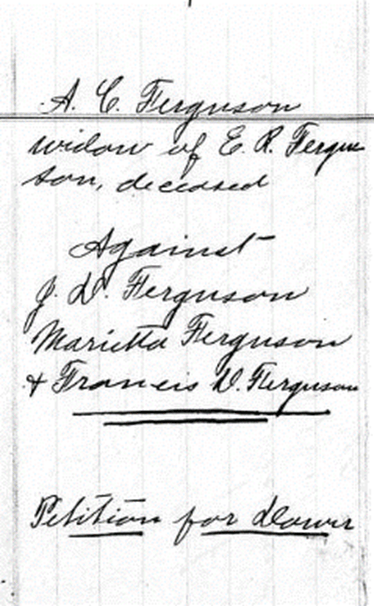 A. C. Ferguson
widow of E. R. Fergu
son, deceased
Against
J. D. Ferguson
Marietta Ferguson
& Francis D. Ferguson
Petition for Dower